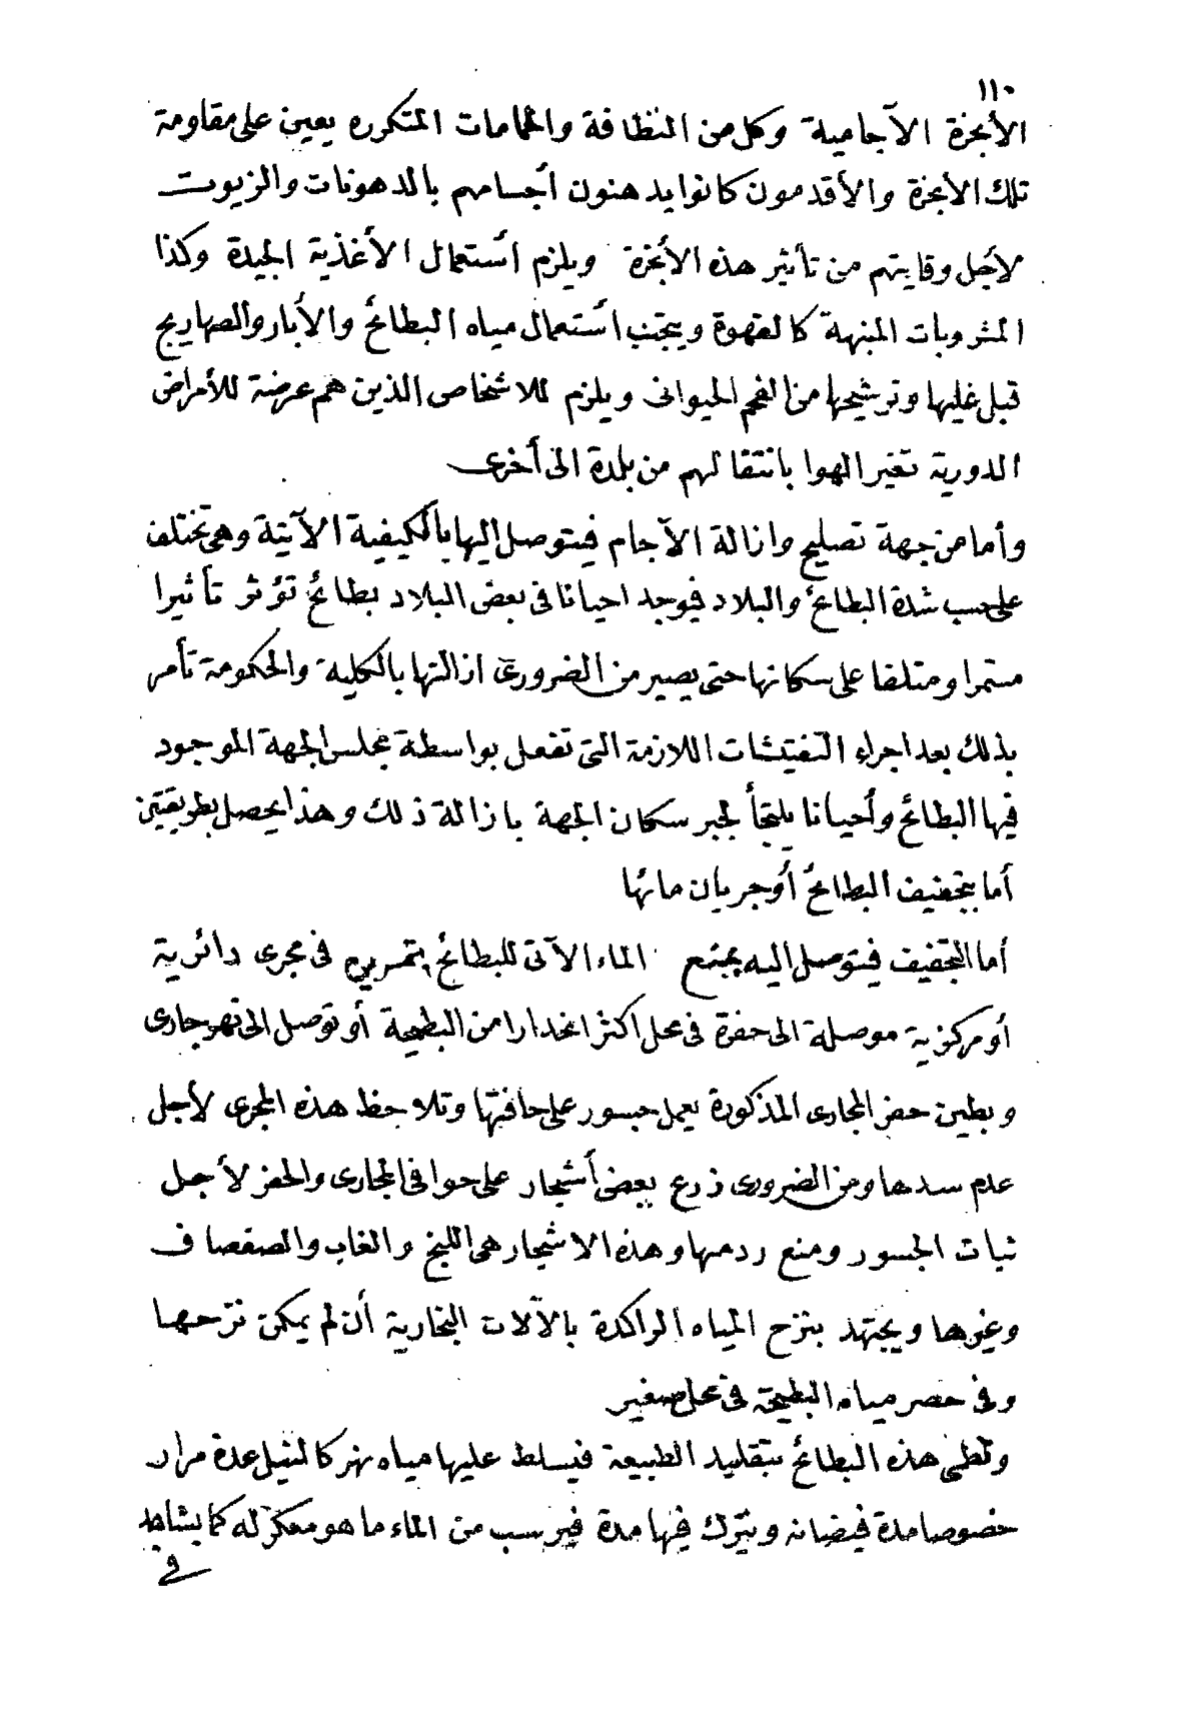 ١١٠
الأبخرة الآجامية وكل من النظافة والحمامات المتكرره يعين على مقاومة
تلك الأبخرة والأقدمون كانوا يدهنون أجسامهم بالدهونات والزيوت
لأجل وقايتهم من تأثير هذه الأبخرة ويلزم أستعمال الأغذية الجيدة وكذا
المشروبات المنبهة كالقهوة ويتجنب أستعمال مياه البطائح والأبار والصهاريج
قبل غليها وترشيحها من الفحم الحيوانى ويلزم للاشخاص الذين هم عرضة للأمراض
الدورية تغير الهوا بانتقالهم من بلدة الى أخرى
وأما من جهة تصليح وازالة الآجام فيتوصل اليها بالكيفية الآتية وهى تختلف
على حسب شدة البطائح والبلاد فيوجد احيانا فى بعض البلاد بطائح تؤثر تأثيرا
مستمرا ومتلفا على سكانها حتى يصير من الضرورى ازالتها بالكلية والحكومة تأمر
بذلك بعد اجراء التفتيشات اللازمة التى تفعل بواسطة مجلس الجهة الموجود
فيها البطائح وأحيانا يلتجأ لجبر سكان الجهة بازالة ذلك وهذا يحصل بطريقتين
أما بتجفيف البطائح أو جريان مائها
أما التجفيف فيتوصل اليه بمنع الماء الآتى للبطائح بتمريره فى مجرى دائرية
أو مركزية موصلة الى حفرة فى محل اكثر انحدارا من البطيحة أو توصل الى نهر جارى
وبطين حفر المجارى المذكورة يعمل جسور على حافتها وتلاحظ هذه المجرى لأجل
عدم سدها ومن الضرورى زرع بعض أشجار على حوافى المجارى والحفر لأجل
ثبات الجسور ومنع ردمها وهذه الاشجار هى اللبخ والغاب والصفصاف
وغيرها ويجتهد بنزح المياه الراكدة بالآلات البخارية أن لم يمكن نزحها
وفى حصر مياه البطيحة فى محل صغير
وتطمى هذه البطائح بتقليد الطبيعة فيسلط عليها مياه نهر كالنيل عدة مرار
خصوصا مدة فيضانه ويترك فيها مدة فيرسب من الماء ما هو معكر له كما يشاهد
فى